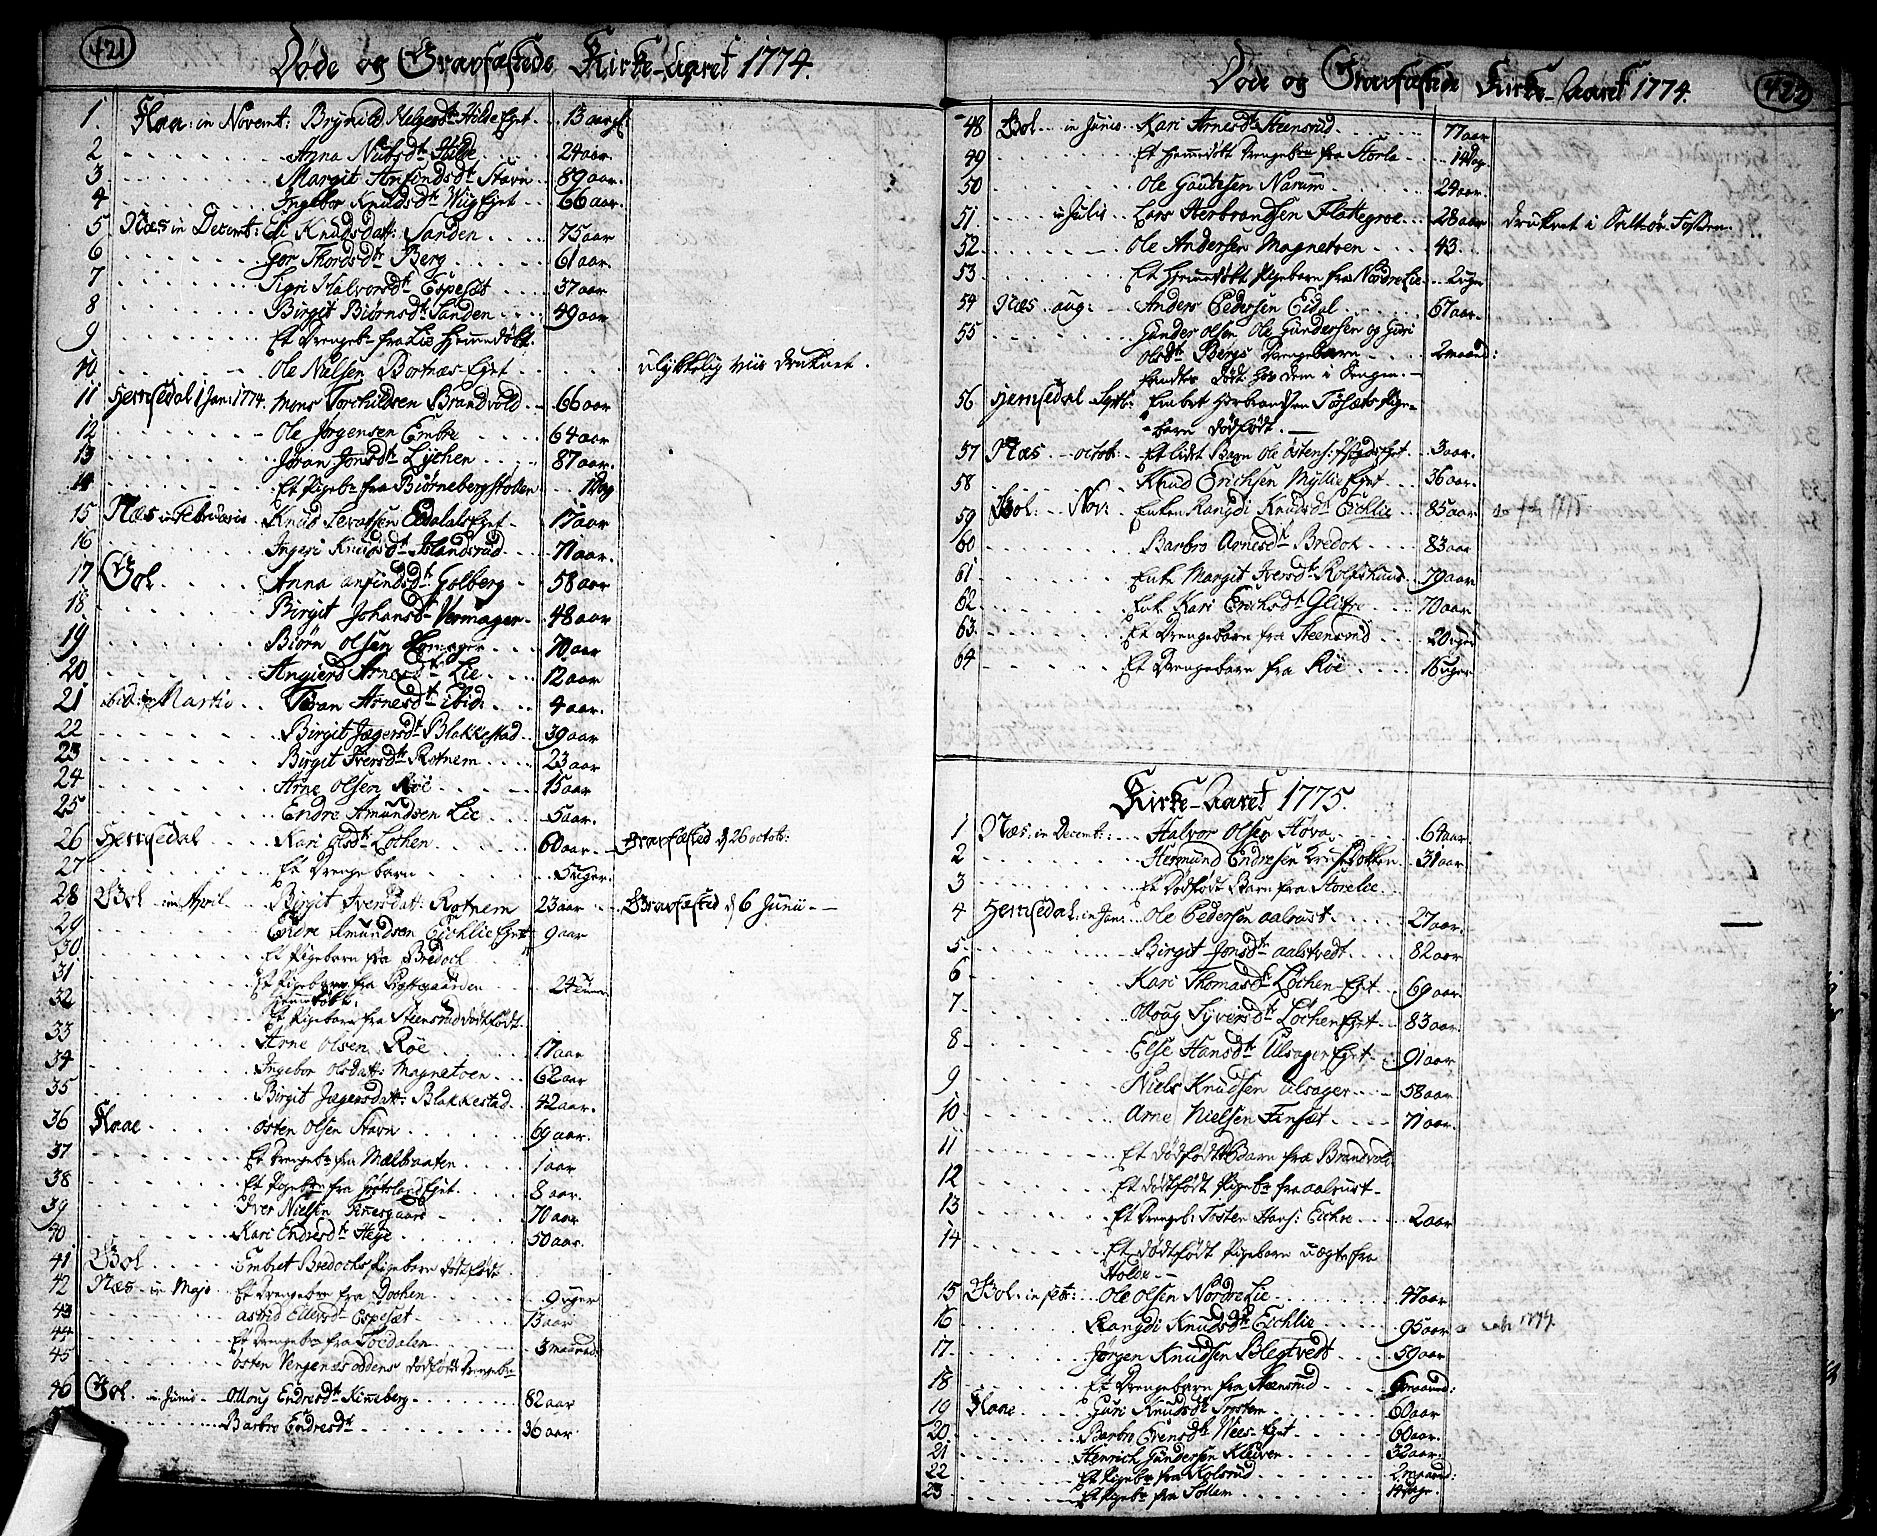 421
Døde og Gravfæstede Kirke-Aaret 1774.
1. Flaa: in Novemt: Brynild Helgesdtr Hilde Eget. 13 aar
2 Anna Nubsdtr Hilde 24 aar.
3 Margit Anfindsdtr Stavn 89 aar.
4 Ingebor Knudsdtr Wiig Eget 66 aar.
5 Næs in Decemt: Eli Knudsdatt: Sanden 75 aar
6 Gor Thordsdtr Berg 61 aar.
7 Kari Halvorsdtr Espesæt 37 aar
8 Birgit Biørnsdtr Sanden 49 aar
9 Et Drengebn fra Lie Hiemmedøbt.
10 Ole Nielsen Bortnæs Eget ulykkelig viis druknet.
11 Hemsedal 1 Jan: 1774. Mons Torchildsen Brandvold 66 aar
12 Ole Jørgensen Embre 64 aar
13 Jøran Jonsdtr Lychen 87 aar.
14 Et Pigebn fra Biørneberg Stollen 1 Dag
15 Næs in Februario Knud Sevatsen Eidalats Eget 17 aar
16 Ingeri Knudsdtr Islandsrud 71 aar.
17 Gol Anna Anfindsdtr Golberg 58 aar
18 Birgit Johansdtr Vermager 48 aar
19 Biørn Olsen 70 aar
20 Angierd Arnesdtr Lie 12 aar
21 ibid: in Martio Jøran Arnesdtr ibid. 4 aar.
22 Birgit Jægersdtr Blakkestad 39 aar
23 Birgit Iversdtr Rotnem 23 aar
24 Arne Olsen Røe 15 aar
25 Endre Amundsen Lie 5 aar.
26 Hemsedal Kari Olsdtr Løchen 60 aar. Gravfæsted d 26 octob:
27 Et Drengebarn 5 uger.
28 Gol in April Birgit Iversdatt: Rotnem 23 aar Gravfæsted d 6 Junii
29 Endre Amundsen Eichlie Eget 9 aar
30 Et Pigebarn fra Bredoch
31 Et Pigebarn fra Præstegaarden Hiemmedøbt. 24 timer
32 Et Pigebarn fra Steensrud dødfødt.
33 Arne Olsen Røe 17 aar
34 Ingebor Olsdatt: Magnetoen 62 aar
35 Birgit Jægersdatt: Blakkestad 42 aar.
36 Flaae Østen Olsen Stavn 69 aar.
37 Et Drengebn fra Mælbraaten 1 aar
38 Et Pigebn fra Eget 8 aar.
39 Iver Nielsen 70 aar
40 Kari Endresdtr Hege 50 aar.
41 Gol Embret Bredochs Pigebarn dødfødt
42 Næs in Majo Et Drengebn fra Dochen 9 uger
43 Astrid Ellevsdtr Espesæt 15 aar
44 Et Drengebn fra Toedalen 3 maaned
45 Østen Vengenæsoddens dødfødt Drengebn
46 Gol in Junio Olloug Endresdtr Kinneberg 82 aar
Barbro Endresdtr 36 aar
422
Døde og Gravfæstede Kirke-Aaret 1774.
48 Gol in Junio Kari Arnesdtr Steensrud 77 aar
49 Et Hiemmedøbt Drengebn fra Storla 14 Dag
50 Ole Goutesen Narum 24 aar.
51 in Julio Lars Herbrandsen Flattegroe 28 aar druknet i Fossen.
52 Ole Andersen Magnetoen 43.
53 Et Hiemmedøbt Pigebarn fra Nordre Lie 2 uger
54 Næs aug: Anders Pedersen Eidal 67 aar.
55 Gunder Olsen Ole Gundersen og Guri
Olsdtr Bergs Drengebarn 2 maaned:
fandtes dødt hos dem i Sengen.
56 Hemsedal Septb: Embret Herbrandsen Pige-
barn dødfødt.
57 Næs octob: Et lidet Barn Ole Østens: Eget 3 aar.
58 Knud Erichsen Myllie Eget 36 aar.
59 Gol: Nov: Enken Rangdi Knudsdtr Eichlie 85 aar 1775
60 Barbro Arnesdtr Bredok 83 aar
61 Enke Margit Iversdtr Rolfshuus 79 aar
62 Enk Kari Erichsdtr Glitre 70 aar
63 Et Drengebarn fra Steensrud 20 uger
64 Et Drengebarn fra Røe 16 uger
Kirke-Aaret 1775.
1 Næs in Decemt: Halvor Olsen Hova 64 aar
2 Hermund Endresen 31 aar.
3 Et dødfødt Barn fra Storelie
4 Hemsedal in Jan: Ole Pedersen Aalrust 27 aar.
5 Birgit Jonsdtr Aalstvedt 82 aar
6 Kari Thomasdtr Løchen Eget 69 aar.
7 Oloug Syversdtr Løchen Eget 83 aar.
8 Else Hansdtr Ulsager Eget 91 aar
9 Niels Knudsen Ulsager 58 aar
10 Arne Nielsen Finset 71 aar.
11 Et dødfødt Barn fra Brandvold
12 Et dødfødt Pigebn fra Aalrust
13 Et Drengeb: Tosten Hans: Eichre 2 aar
14 Et dødfødt Pigebarn uægte fra
Holde
15 Gol in febr: Ole Olsen Nordre Lie 47 aar
16 Rangdi Knudsdtr Eichlie 95 aar 1774.
17 Jørgen Knudsen Blegtvedt 59 aar
18 Et Drengebarn fra Steensrud 6 maaned:
19 Flaae Guri Knudsdtr Trøstem 60 aar
20 Barbro Evensdtr Wees Eget 60 aar.
21 Henrich Gundersen Kleeven 32 aar:
22 Et Pigebn fra Kolsrud 2 maaned:
23 Et Pigebn fra Sollem